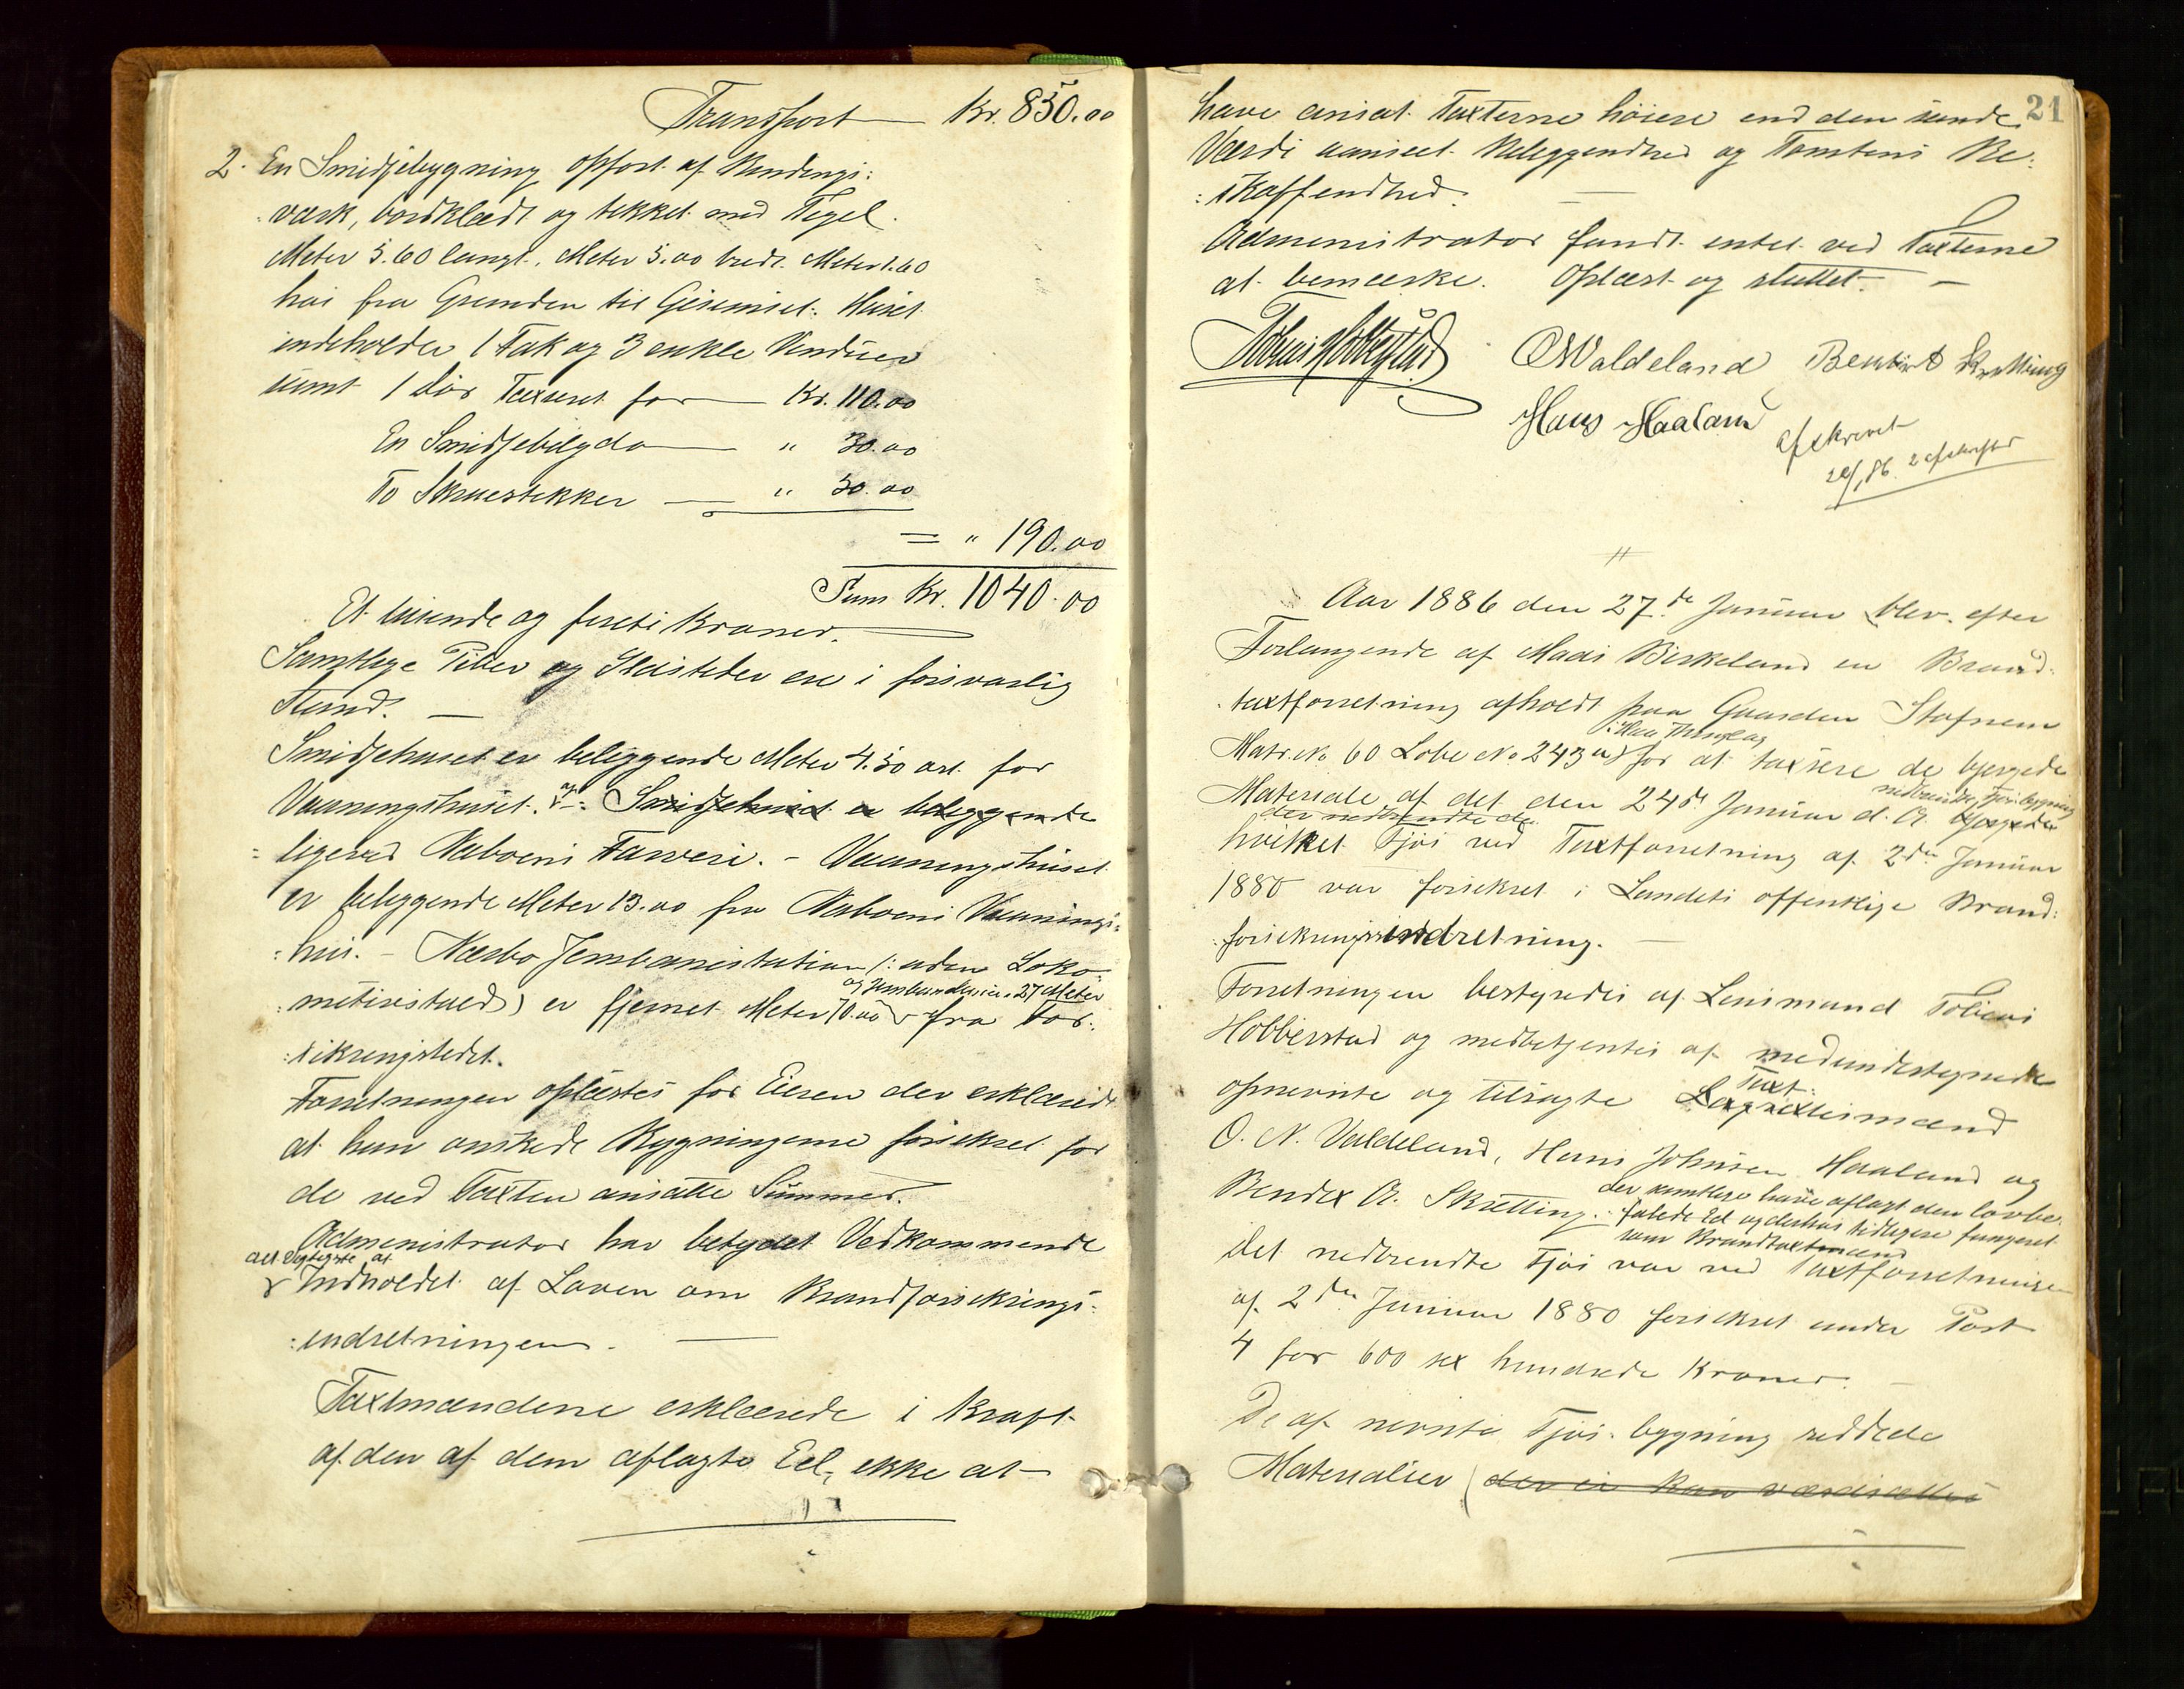 Transport Kr. 850.00
2. En Smidjebygning opført af Bindings:
:værk, bordklædt og tekket med Tegel.
Meter 5.60 langt, Meter 5.00 bredt. Meter 1.60
høi fra Grunden til Gesimset. Huset
indeholder 1 Fak og 3 enkle Vinduer
samt 1 Dør Taxeret for Kr. 110.00
En Smidjebelg do " 30.00
To Skruestikker " 50.00
= " 190.00
Sum Kr. 1040.00
Et tusinde og fyrti Kroner.
Samtlige Piber og Ildsteder ere i forsvarlig
Stand.
Smidjehuset er beliggende Meter 4.50 ost for
Vaaningshuset. og Smidjehuset er beliggende
ligeved Naboens Farveri. - Vaaningshuset
er beliggende Meter 13.00 fra Naboens Vaanings:
:hus. - Nærbø Jernbanestation /: uden Loko-
og Jernbanelinien 27 Meter
:motivstald) er fjernet Meter 70.00 fra For:
:sikringstedet.
Forretningen oplæstes for Eieren der erklærede
at han ønskede Bygningerne forsikret for
de ved Taxten ansatte Summer.
Administrator har betydet Vedkommende
det vigtigste af
Indholdet af Loven om Brandforsikrings:
:indretningen.
Taxtmændene erklærede i Kraft
af den af dem aflagte Eed, ikke at
21
have ansat Taxterne høiere end den sande
Værdi uanseet Beliggendhed og Tomtens Be:
:skaffendhed.
Administrator fandt intet ved Taxterne
at bemærke. Oplæst og sluttet.
Tobias Hobberstad ON Valdeland Bendix A Skretting
Hans Haaland
afskrevet
2 afskrifter
Aar 1886 den 27de Januar blev efter
Forlangende af Mads Birkeland en Brand:
:taxtforretning afholdt paa Gaarden Stafnem
i Haa Thinglag
Matr. No 60 Løbe No 243 a) for at taxsere de bjergede
nedbrændte Fjøsbygning
Materiale af det den 24de Januar d. A. bjergede
der nedbrændte de
hvilket Fjøs ved Taxtforretning af 2den Januar
1880 var forsikret i Landets offentlige Brand:
:forsikringsindretning.
Forretningen bestyredes af Lensmand Tobias
Hobberstad og medbetjentes af medundertegnede
Taxt:
opnevnte og tilsagte Lagrettesmænd
O. N. Valdeland, Hans Johnsen Haaland og
der samtlige have aflagt den lovbe:
Bendix A. Skretting. falede Ed og derhos tidligere fungeret
som Brandtaxtmænd
Det nedbrendte Fjøs var ved Taxtforretningen
af 2den Januar 1880 forsikret under Post
4 for 600 sex hundrede Kroner.
De af nevnte Fjøs-bygning reddede
Materialier (der ei kan værdsættes